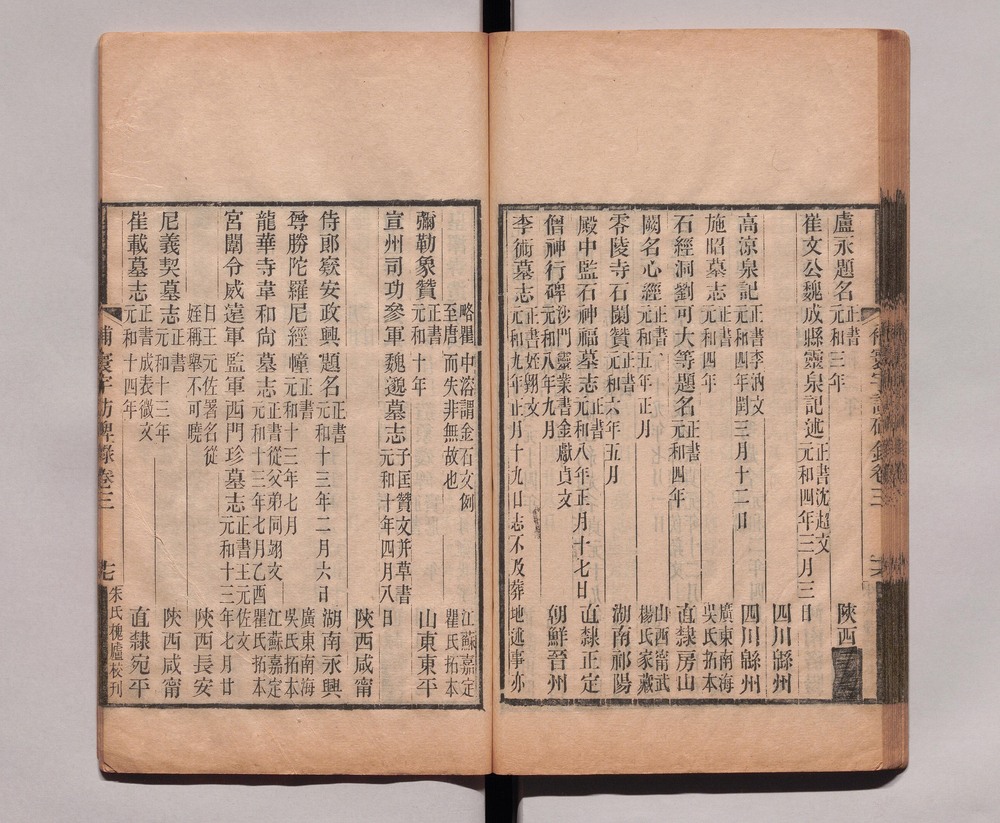 盧永題名正書元和三年 陝西
崔文公魏成縣靈泉記述正書沈超文元和四年三月三日 四川緜州
高涼泉記正書李汭文元和四年閏三月十二日 四川緜州
施昭墓志正書元和四年 廣東南海吳氏拓本
石經洞劉可大等題名正書元和四年 直隸房山
闕名心經正書元和五年正月 山西甯武楊氏家藏
零陵寺石闌贊正書元和六年五月 湖南祁陽
殿中監石神福墓志正書元和八年正月十七日 直隸正定
僧神行碑沙門靈業書金獻貞文元和八年九月 朝鮮晉州
李術墓志正書姪翱文元和九年正月十九日志不及葬地述事亦
略瞿中溶謂金石文例至唐而失非無故也 江蘇嘉定瞿氏拓本
彌勒象贊正書元和十年 山東東平
宣州司功參軍魏邈墓志子匡贊文并草書元和十年四月八日
陝西咸甯
侍郎窾安政興題名正書元和十三年二月六日 湖南永興
尊勝陀羅尼經幢正書元和十三年七月 廣東南海吳氏拓本
龍華寺韋和尚墓志正書從父弟同翊文元和十三年七月乙酉 江蘇嘉定瞿氏拓本
宮闈令威遠軍監軍西門珍墓志正書王元佐文元和十三年七月廿
日王元佐署名從姪稱舉不可曉 陝西長安
尼義契墓志正書元和十三年 陝西咸甯
崔載墓志正書成表微文元和十四年 直隸宛平
補寰宇訪碑錄卷三
七
朱氏槐廬校刊